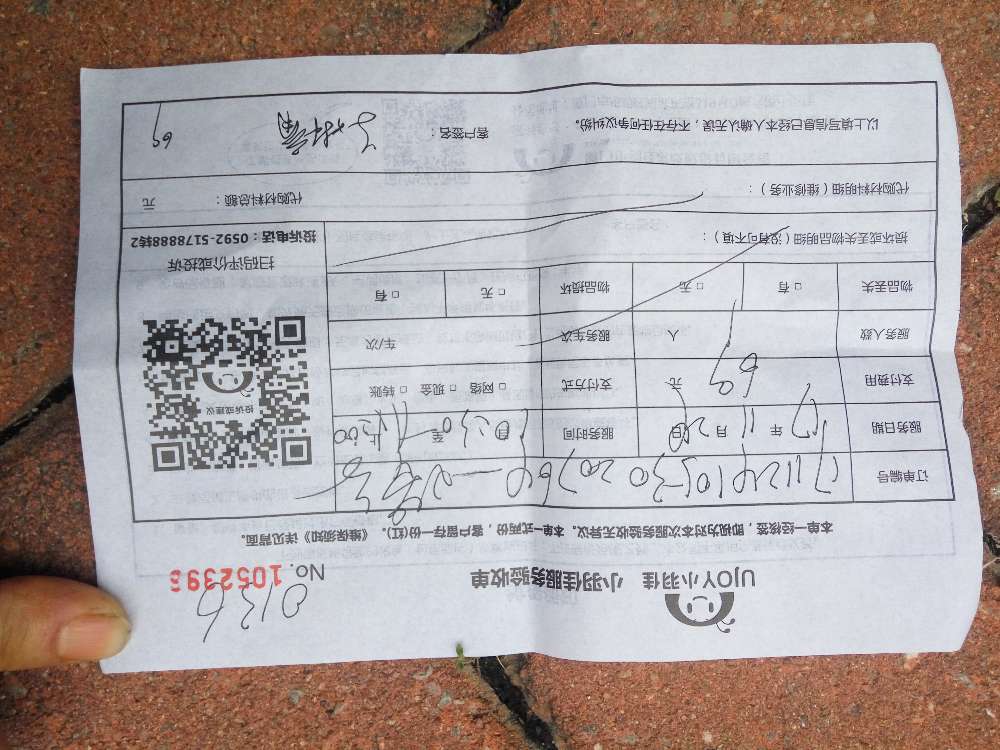 UJOY小羽佳 小羽佳服务验收单
No. 1052393
0136
本单一经核签，即视为对本次服务验收无异议。本单一式两份，客户留存一份(红)。《维保须知》详见背面。
订单编号
服务日期 17年11月26日 服务时间 自10:30至11:00止
支付费用 69元 支付方式 □ 网络 □ 现金 □ 转账
服务人数 人 服务车次 车/次
物品丢失 □ 有 □ 无 物品损坏 □ 无 □ 有
投诉或建议
扫码评价或投诉
投诉电话：0592-5178888转2
损坏或丢失物品明细（没有可不填）：
代购材料明细（维修业务）：
代购材料总额： 元
以上填写信息已经本人确认无误，不存在任何争议纠纷。 客户签名：
69